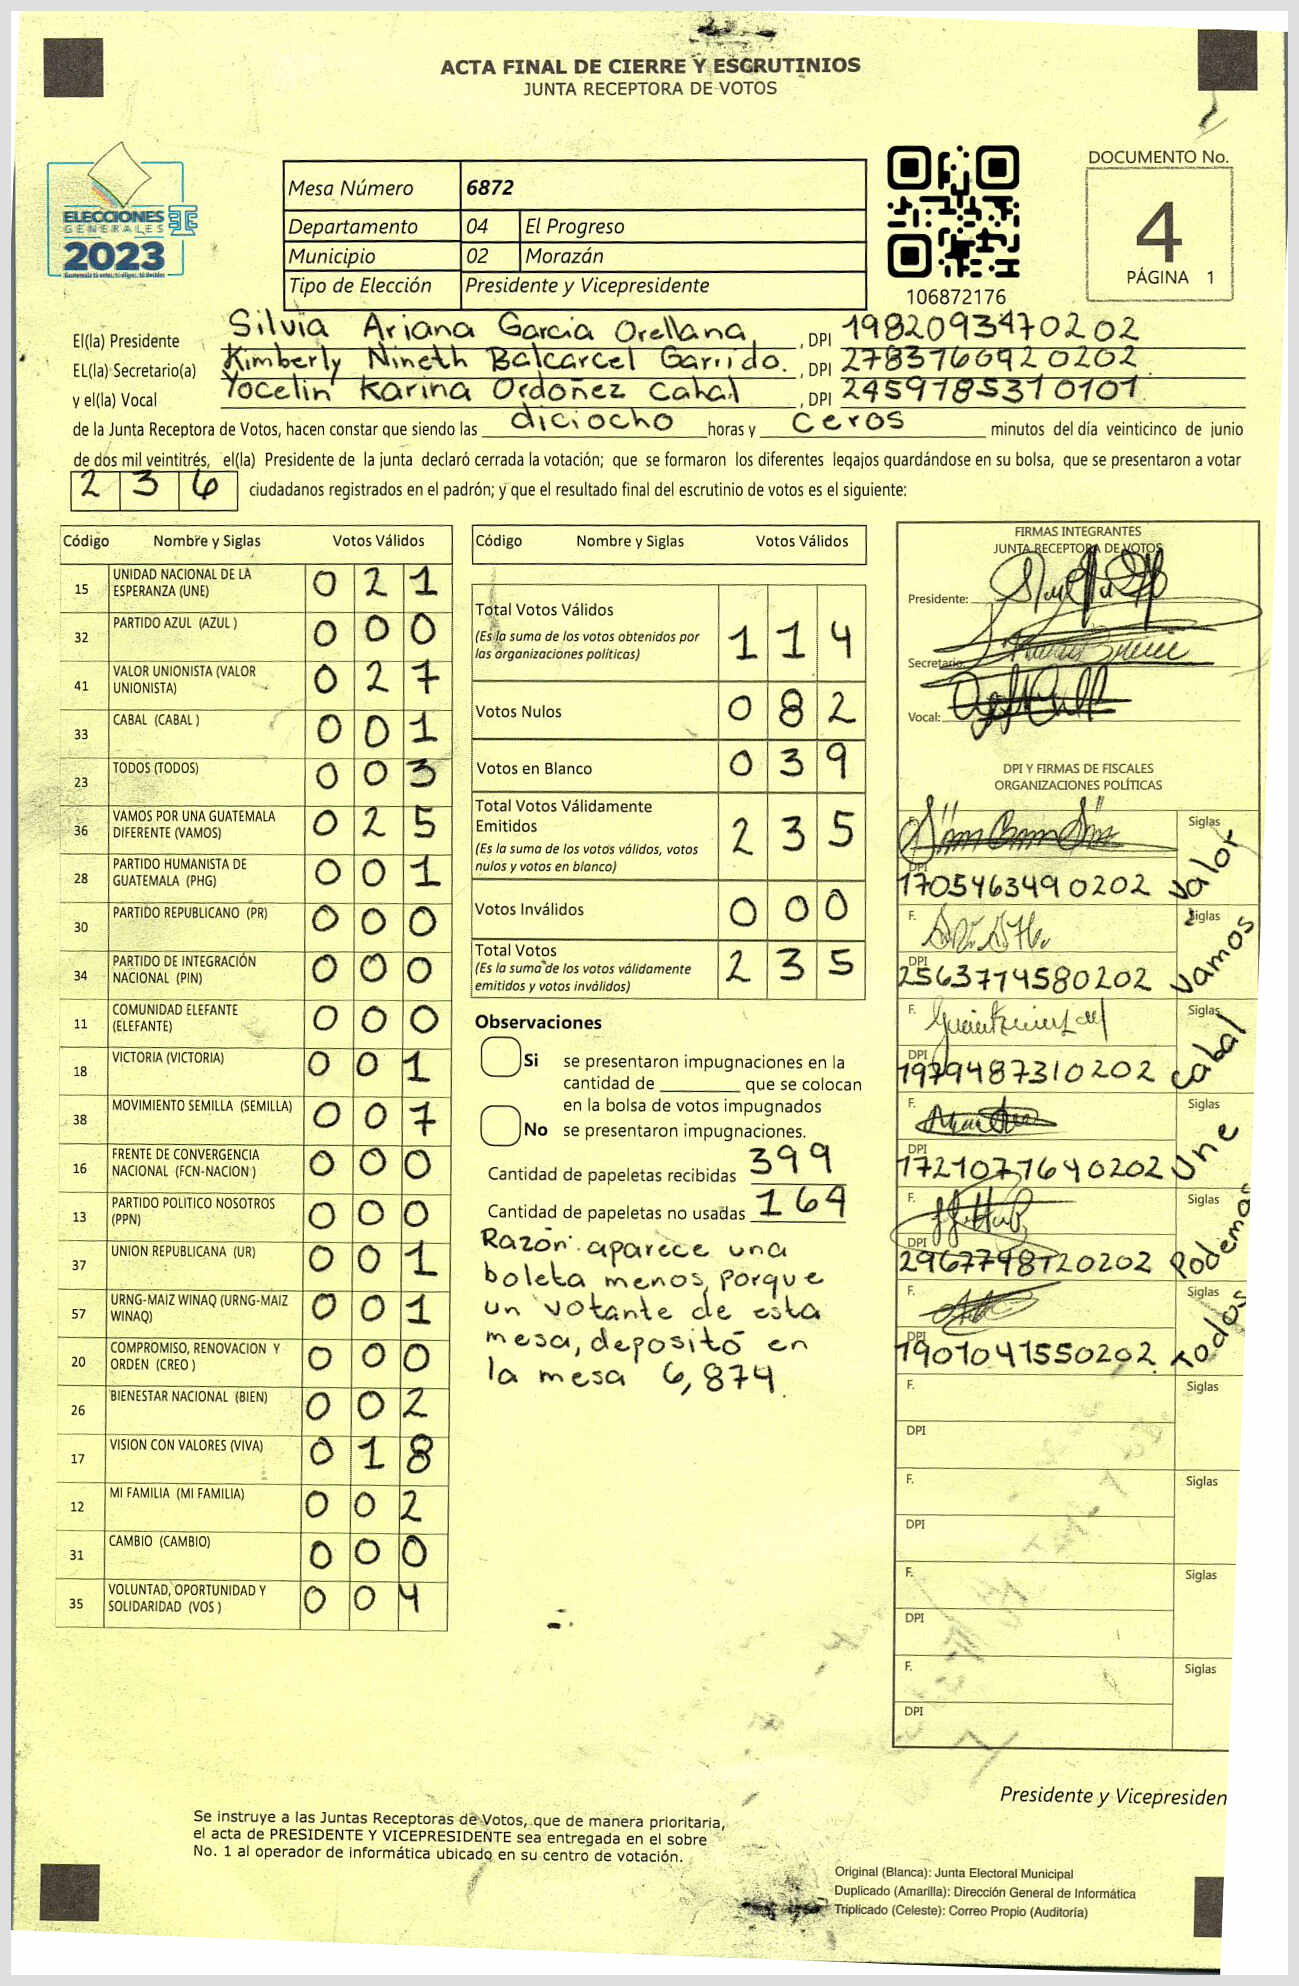 ACTA FINAL DE CIERRE Y ESCRUTINIOS
JUNTA RECEPTORA DE VOTOS
ELECCIONES
GENERALES
2023
Mesa Número 6872
Departamento 04 El Progreso
Municipio 02 Morazán
Tipo de Elección Presidente y Vicepresidente
106872176
DOCUMENTO No.
4
PÁGINA 1
El(la) Presidente Silvia Ariana Garcia Orellana, DPI 1982093470202
EL(la) Secretario(a) Kimberly Nineth Balcarcel Garrido., DPI 2783760920202
y el(la) Vocal Yocelin Karina Ordoñez Cahal, DPI 2459785310101
de la Junta Receptora de Votos, hacen constar que siendo las diciocho horas y ceros minutos del día veinticinco de junio
de dos mil veintitrés, el(la) Presidente de la junta declaró cerrada la votación; que se formaron los diferentes legajos guardándose en su bolsa, que se presentaron a votar
236 ciudadanos registrados en el padrón; y que el resultado final del escrutinio de votos es el siguiente:
Código Nombre y Siglas Votos Válidos
15 UNIDAD NACIONAL DE LA ESPERANZA (UNE) 0 2 1
32 PARTIDO AZUL (AZUL ) 0 0 0
41 VALOR UNIONISTA (VALOR UNIONISTA) 0 2 7
33 CABAL (CABAL ) 0 0 1
23 TODOS (TODOS) 0 0 3
36 VAMOS POR UNA GUATEMALA DIFERENTE (VAMOS) 0 2 5
28 PARTIDO HUMANISTA DE GUATEMALA (PHG) 0 0 1
30 PARTIDO REPUBLICANO (PR) 0 0 0
34 PARTIDO DE INTEGRACIÓN NACIONAL (PIN) 0 0 0
11 COMUNIDAD ELEFANTE (ELEFANTE) 0 0 0
18 VICTORIA (VICTORIA) 0 0 1
38 MOVIMIENTO SEMILLA (SEMILLA) 0 0 7
16 FRENTE DE CONVERGENCIA NACIONAL (FCN-NACION ) 0 0 0
13 PARTIDO POLITICO NOSOTROS (PPN) 0 0 0
37 UNION REPUBLICANA (UR) 0 0 1
57 URNG-MAIZ WINAQ (URNG-MAIZ WINAQ) 0 0 1
20 COMPROMISO, RENOVACION Y ORDEN (CREO ) 0 0 0
26 BIENESTAR NACIONAL (BIEN) 0 0 2
17 VISION CON VALORES (VIVA) 0 1 8
12 MI FAMILIA (MI FAMILIA) 0 0 2
31 CAMBIO (CAMBIO) 0 0 0
35 VOLUNTAD, OPORTUNIDAD Y SOLIDARIDAD (VOS ) 0 0 4
Código Nombre y Siglas Votos Válidos
Total Votos Válidos 1 1 4
(Es la suma de los votos obtenidos por
las organizaciones políticas)
Votos Nulos 0 8 2
Votos en Blanco 0 3 9
Total Votos Válidamente
Emitidos 2 3 5
(Es la suma de los votos válidos, votos
nulos y votos en blanco)
Votos Inválidos 0 0 0
Total Votos 2 3 5
(Es la suma de los votos válidamente
emitidos y votos inválidos)
Observaciones
Si se presentaron impugnaciones en la
cantidad de ________ que se colocan
en la bolsa de votos impugnados
No se presentaron impugnaciones.
Cantidad de papeletas recibidas 399
Cantidad de papeletas no usadas 164
Razón: aparece una
boleta menos, porque
un votante de esta
mesa, depositó en
la mesa 6,874.
FIRMAS INTEGRANTES
JUNTA RECEPTORA DE VOTOS
Presidente:
Secretario:
Vocal:
DPI Y FIRMAS DE FISCALES
ORGANIZACIONES POLÍTICAS
F. Siglas Valor
DPI 1705463490202
F. Siglas Vamos
DPI 2563774580202
F. Siglas Cabal
DPI 1979487310202
F. Siglas Une
DPI 1721077640202
F. Siglas Podemos
DPI 2967748120202
F. Siglas Todos
DPI 1901041550202
F. Siglas
DPI
F. Siglas
DPI
F. Siglas
DPI
F. Siglas
DPI
Presidente y Vicepresiden
Se instruye a las Juntas Receptoras de Votos, que de manera prioritaria,
el acta de PRESIDENTE Y VICEPRESIDENTE sea entregada en el sobre
No. 1 al operador de informática ubicado en su centro de votación.
Original (Blanca): Junta Electoral Municipal
Duplicado (Amarilla): Dirección General de Informática
Triplicado (Celeste): Correo Propio (Auditoría)